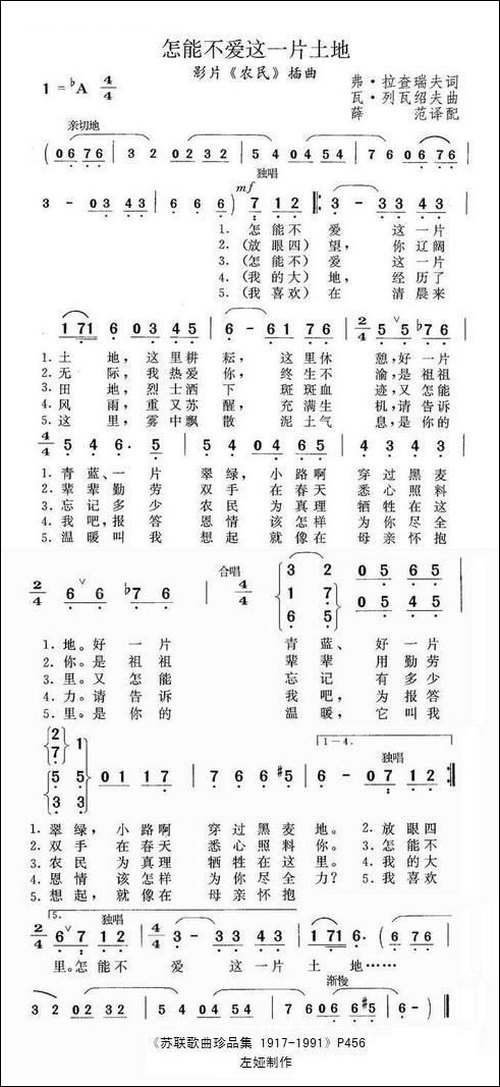 怎能不爱这一片土地
影片《农民》插曲
1 = ♭A 4/4
弗·拉查瑞夫词
瓦·列瓦绍夫曲
薛 范译配
亲切地
(0 6 7 6 | 3 2 0 2 3 2 | 5 4 0 4 5 4 | 7 6 0 6 7 6 |
独唱
mf
3 - 0 3 4 3 | 6 6 6 6) 7 1 2 ‖: 3 - 3 3 4 3 |
1. 怎能不 爱 这一片
2. (放眼四)望, 你辽阔
3. (怎能不)爱 这一片
4. (我的大)地, 经历了
5. (我喜欢)在 清晨来
1 7 1 6 0 3 4 5 | 6 - 6 1 7 6 | 2/4 5 ∨ 5 ♭7 6 |
1. 土 地, 这里耕 耘, 这里休 憩,好一片
2. 无 际, 我热爱 你, 终生不 渝,是祖祖
3. 田 地, 烈士洒 下 斑斑血 迹,又怎能
4. 风 雨, 重又苏 醒, 充满生 机,请告诉
5. 这 里, 雾中飘 散 泥土气 息,是你的
4/4 5 4 6 · 5 | 5 4 0 4 6 5 | 4 3 4 3 |
1. 青蓝、一片 翠绿,小路啊 穿过黑麦
2. 辈辈勤劳 双手在春天 悉心照料
3. 忘记多少 农民为真理 牺牲在这
4. 我吧,报答 恩情该怎样 为你尽全
5. 温暖叫我 想起就像在 母亲怀抱
合唱
2/4 6 ∨ 6 ♭7 6 | 4/4 3 2 0 5 6 5 |
1 7 ·
6 5 0 5 4 5
1. 地。好一片 青蓝、好一片
2. 你。是祖祖 辈辈用勤劳
3. 里。又怎能 忘记有多少
4. 力。请告诉 我吧,为报答
5. 里。是你的 温暖,它叫我
1-4.
独唱
2 7 1
5 5 0 1 1 7 | 7 6 6 ♯5 | 6 - 0 7 1 2 :‖
3 3
1. 翠绿,小路啊 穿过黑麦 地。 2. 放眼四
2. 双手在春天 悉心照料 你。 3. 怎能不
3. 农民为真理 牺牲在这 里。 4. 我的大
4. 恩情该怎样 为你尽全 力? 5. 我喜欢
5. 想起,就像在 母亲怀抱
5.
独唱
2/4 6 ∨ 7 1 2 | 4/4 3 - 3 3 4 3 | 1 7 1 6 · (6 7 6 |
里。怎能不 爱 这一片 土 地……
渐慢
3 2 0 2 3 2 | 5 4 0 4 5 4 | 7 6 0 6 6 ♯5 | 6 - ) ‖
《苏联歌曲珍品集 1917-1991》P456
左娅制作